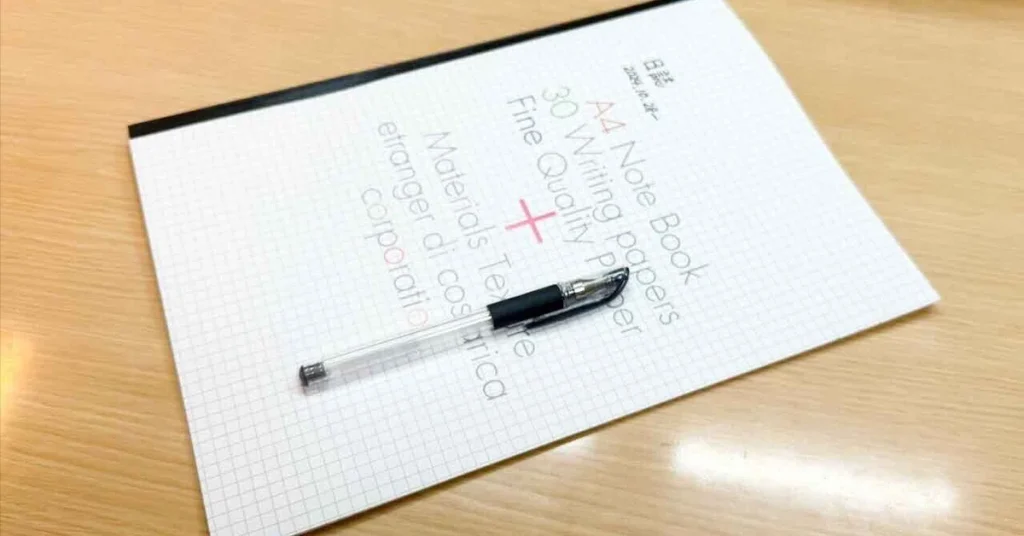 日誌
2024.10.28~
A4 Note Book
30 Writing papers
Fine Quality Paper
+
Materials Texture
etranger di costarica
corporation